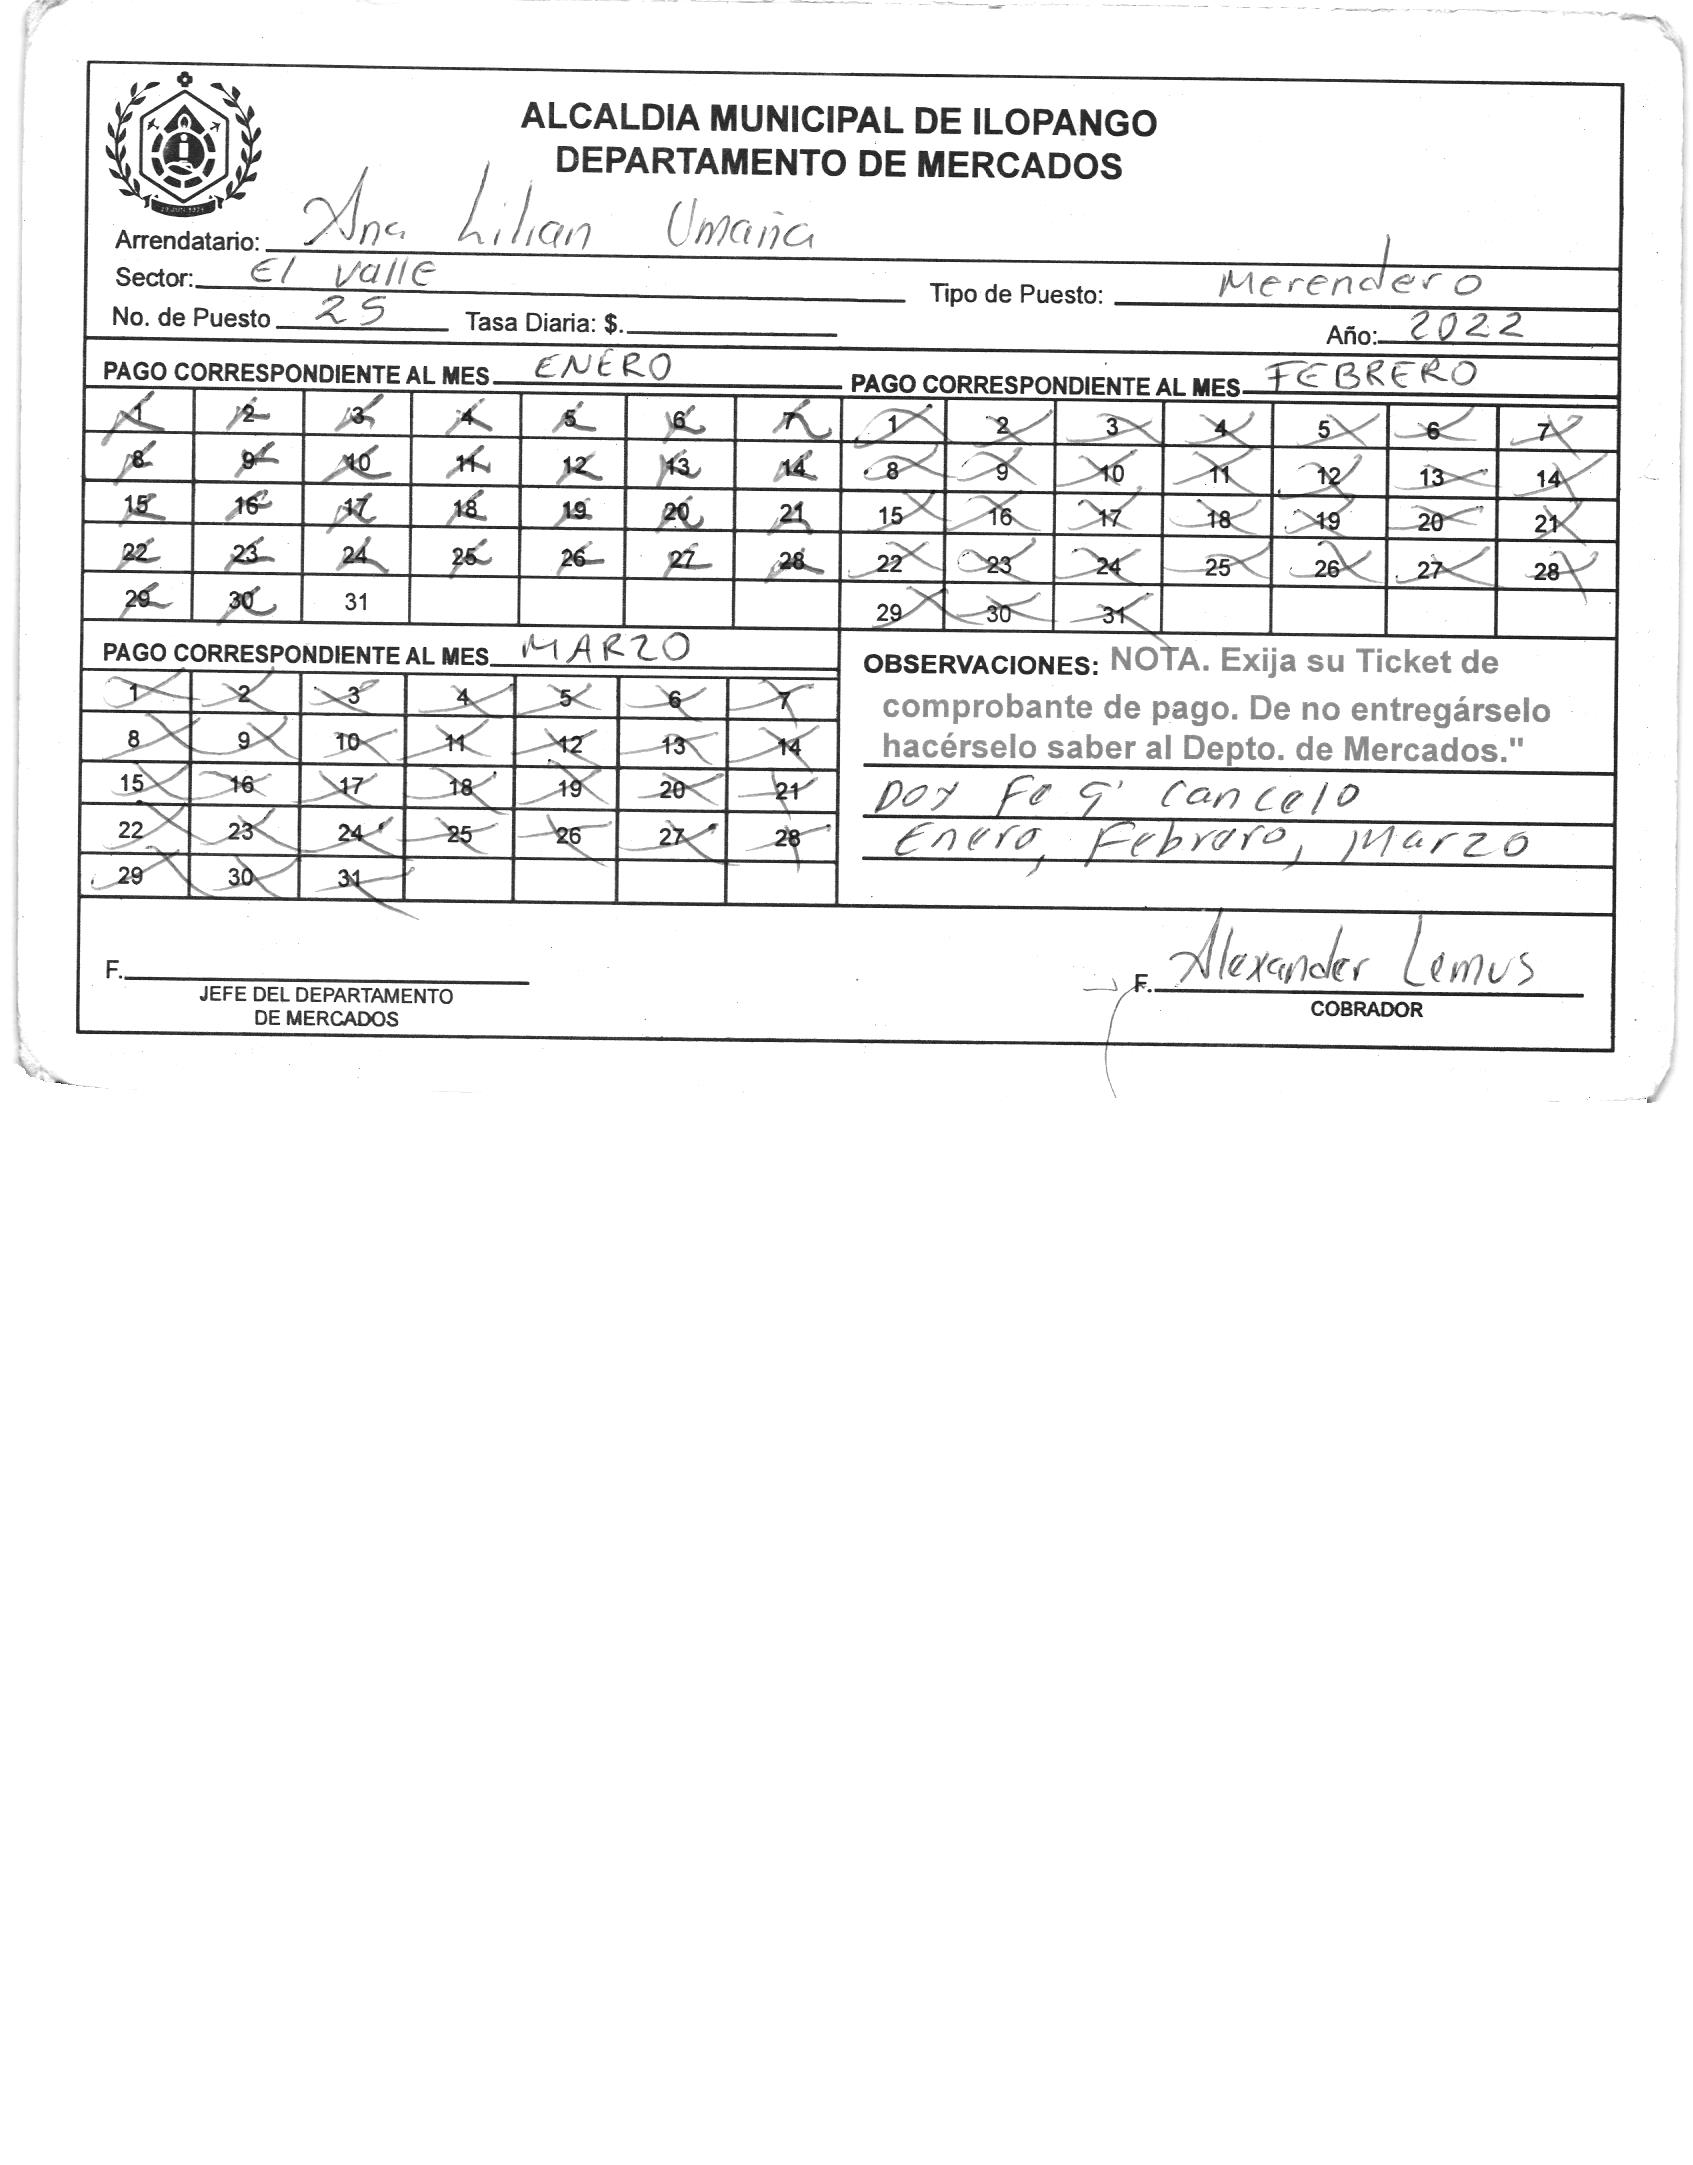 ALCALDIA MUNICIPAL DE ILOPANGO
DEPARTAMENTO DE MERCADOS
Arrendatario: Ana Lilian Umaña
Sector: El valle
Tipo de Puesto: Merendero
No. de Puesto 25 Tasa Diaria: $.
Año: 2022
PAGO CORRESPONDIENTE AL MES ENERO
1 2 3 4 5 6 7
8 9 10 11 12 13 14
15 16 17 18 19 20 21
22 23 24 25 26 27 28
29 30 31
PAGO CORRESPONDIENTE AL MES FEBRERO
1 2 3 4 5 6 7
8 9 10 11 12 13 14
15 16 17 18 19 20 21
22 23 24 25 26 27 28
29 30 31
PAGO CORRESPONDIENTE AL MES MARZO
1 2 3 4 5 6 7
8 9 10 11 12 13 14
15 16 17 18 19 20 21
22 23 24 25 26 27 28
29 30 31
OBSERVACIONES: NOTA. Exija su Ticket de
comprobante de pago. De no entregárselo
hacérselo saber al Depto. de Mercados."
Doy Fe q' cancelo
Enero, Febrero, Marzo
F.
JEFE DEL DEPARTAMENTO
DE MERCADOS
F. Alexander Lemus
COBRADOR